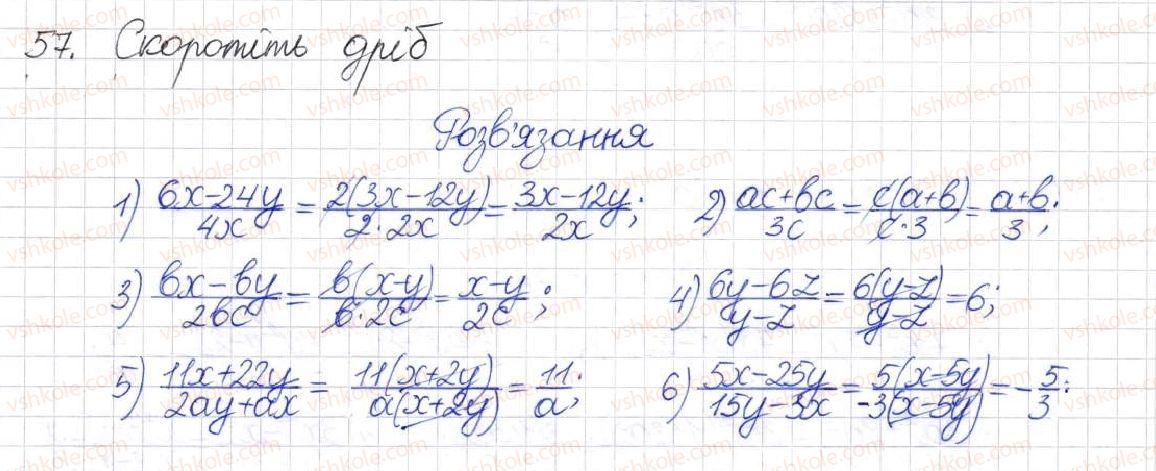 57. Скоротіть дріб
Розв'язання
1) (6x-24y)/(4x) = (2(3x-12y))/(2·2x) = (3x-12y)/(2x); 2) (ac+bc)/(3c) = (c(a+b))/(c·3) = (a+b)/3;
3) (bx-by)/(2bc) = (b(x-y))/(b·2c) = (x-y)/(2c); 4) (6y-6z)/(y-z) = (6(y-z))/(y-z) = 6;
5) (11x+22y)/(2ay+ax) = (11(x+2y))/(a(x+2y)) = 11/a; 6) (5x-25y)/(15y-3x) = (5(x-5y))/(-3(x-5y)) = -5/3: